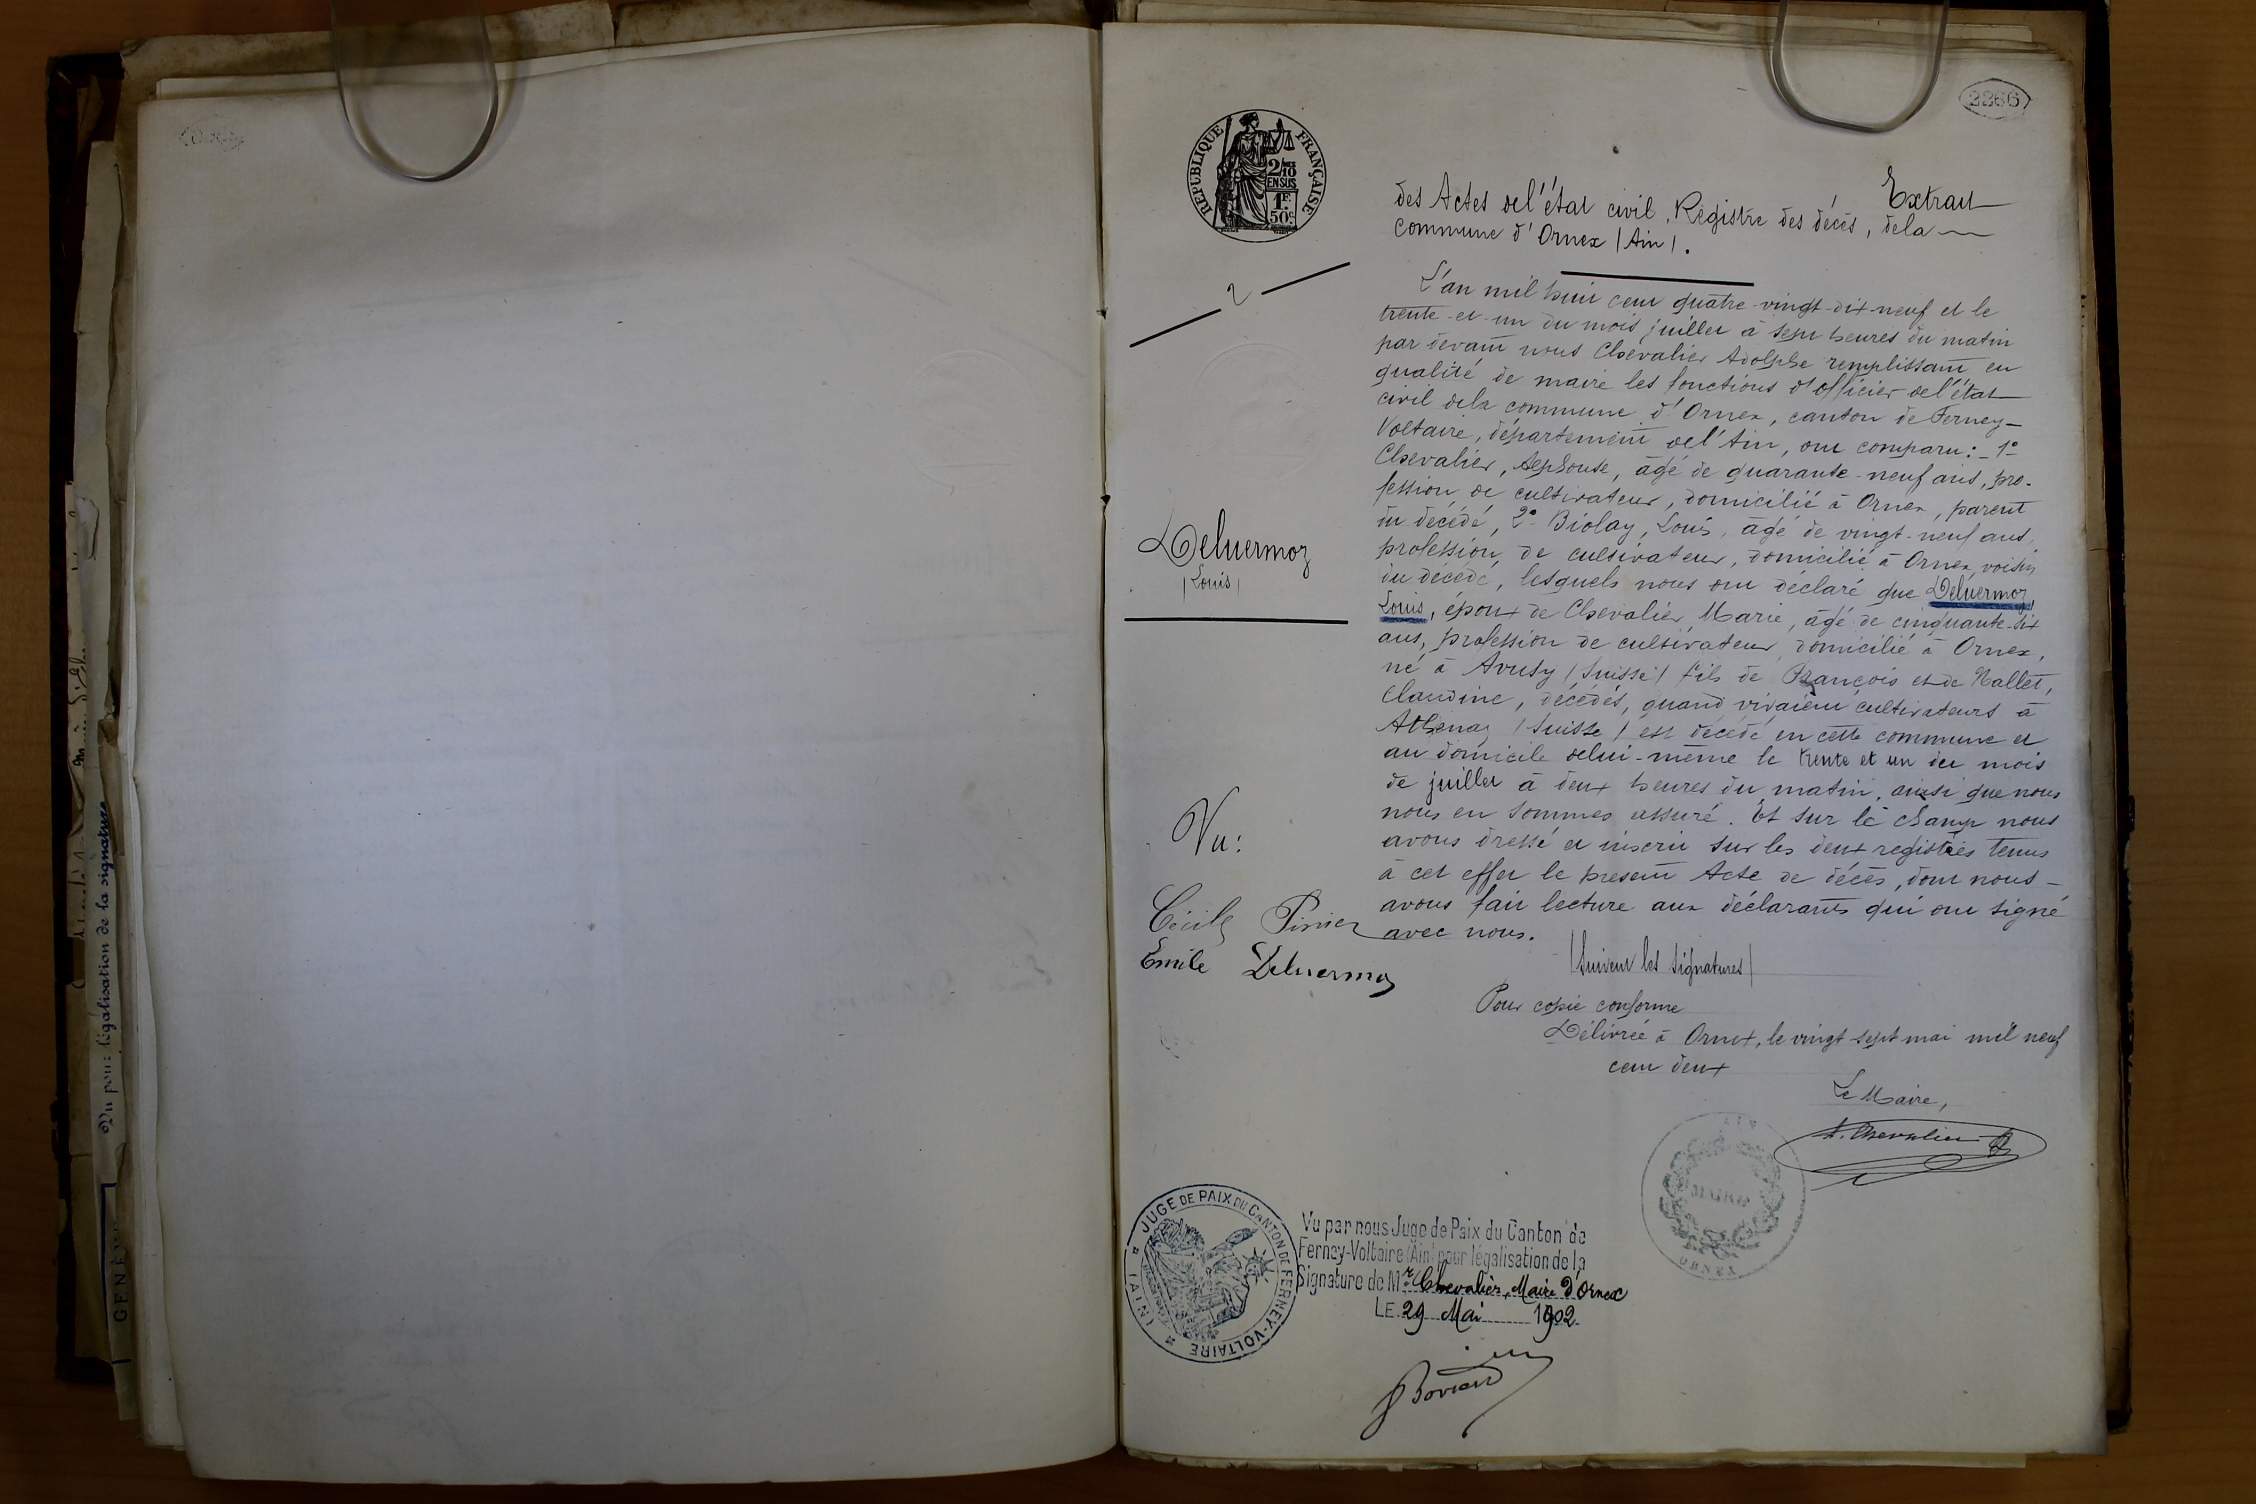 2266
RÉPUBLIQUE FRANÇAISE
2/10
EN SUS
1F
50c
Extrait
des Actes del'état civil, Régistre des décès, dela
commune d'Ornex (Ain).
2
L'an mil huit cent quatre-vingt-dix-neuf et le
trente-et-un du mois juillet à sept heures du matin
par devant nous Chevalier Adolphe remplissant en
qualité de maire les fonctions d'officier del'état
civil dela commune d'Ornex, canton de Ferney-
Voltaire, département del'Ain, ont comparu: 1°
Chevalier, Alphonse, âgé de quarante-neuf ans, pro-
fession de cultivateur, domicilié à Ornex, parent
du décédé, 2° Biolay, Louis, âgé de vingt-neuf ans,
profession de cultivateur, domicilié à Ornex, voisin
du décédé, lesquels nous ont déclaré que Deluermoz,
Louis, époux de Chevalier Marie, âgé de cinquante-six
ans, profession de cultivateur, domicilié à Ornex,
né à Avusy (Suisse) fils de François et de Nallet,
Claudine, décédés, quand vivaient cultivateurs à
Athenaz (Suisse) est décédé en cette commune et
au domicile delui-même le trente et un du mois
de juillet à deux heures du matin, ainsi que nous
nous en sommes assuré. Et sur le champ nous
avons dressé et inscrit sur les deux registres tenus
à cet effet le present Acte de décès, dont nous
avons fait lecture aux déclarants qui ont signé
avec nous.
(Suivent les signatures)
Pour copie conforme
Délivrée à Ornex, le vingt-sept mai mil neuf
cent deux
Le Maire,
A. Chevalier
Deluermoz
(Louis)
Vu:
Cécile
Emile Deluermoz
MAIRIE
AIN
ORNEX
JUGE DE PAIX DU CANTON DE FERNEY-VOLTAIRE
(AIN)
Vu par nous Juge de Paix du Canton de
Ferney-Voltaire (Ain) pour légalisation de la
Signature de Mr Chevalier, Maire d'Ornex
LE 29 Mai 1902
Vu pour légalisation de la signature
GENÈVE